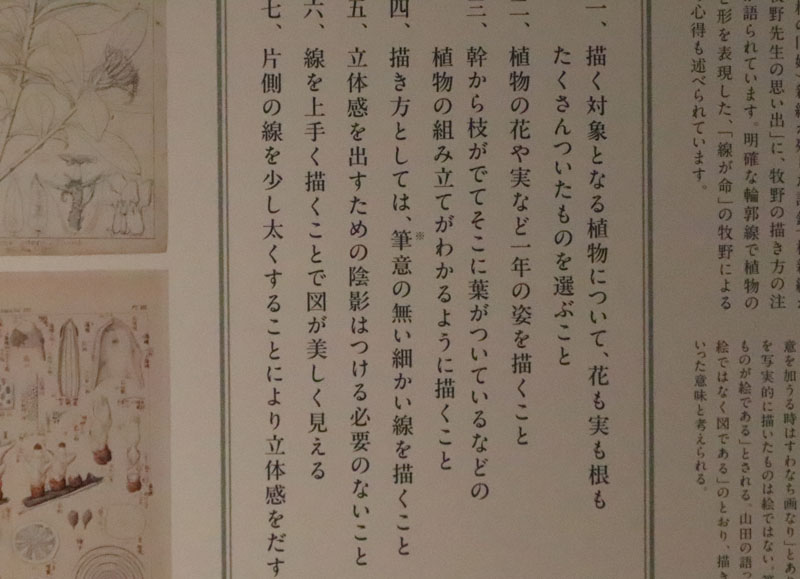 牧野先生の思い出」に、牧野の描き方の注
語られています。明確な輪郭線で植物の
形を表現した、「線が命」の牧野による
心得も述べられています。
一、描く対象となる植物について、花も実も根も
たくさんついたものを選ぶこと
二、植物の花や実など一年の姿を描くこと
三、幹から枝がでてそこに葉がついているなどの
植物の組み立てがわかるように描くこと
四、描き方としては、筆意※の無い細かい線を描くこと
五、立体感を出すための陰影はつける必要のないこと
六、線を上手く描くことで図が美しく見える
七、片側の線を少し太くすることにより立体感をだす
意を加うる時はすわなち画なり」とあ
を写実的に描いたものは絵ではない、
ものが絵である」とされる、山田の語っ
絵ではなく図である」のとおり、描
いった意味と考えられる。